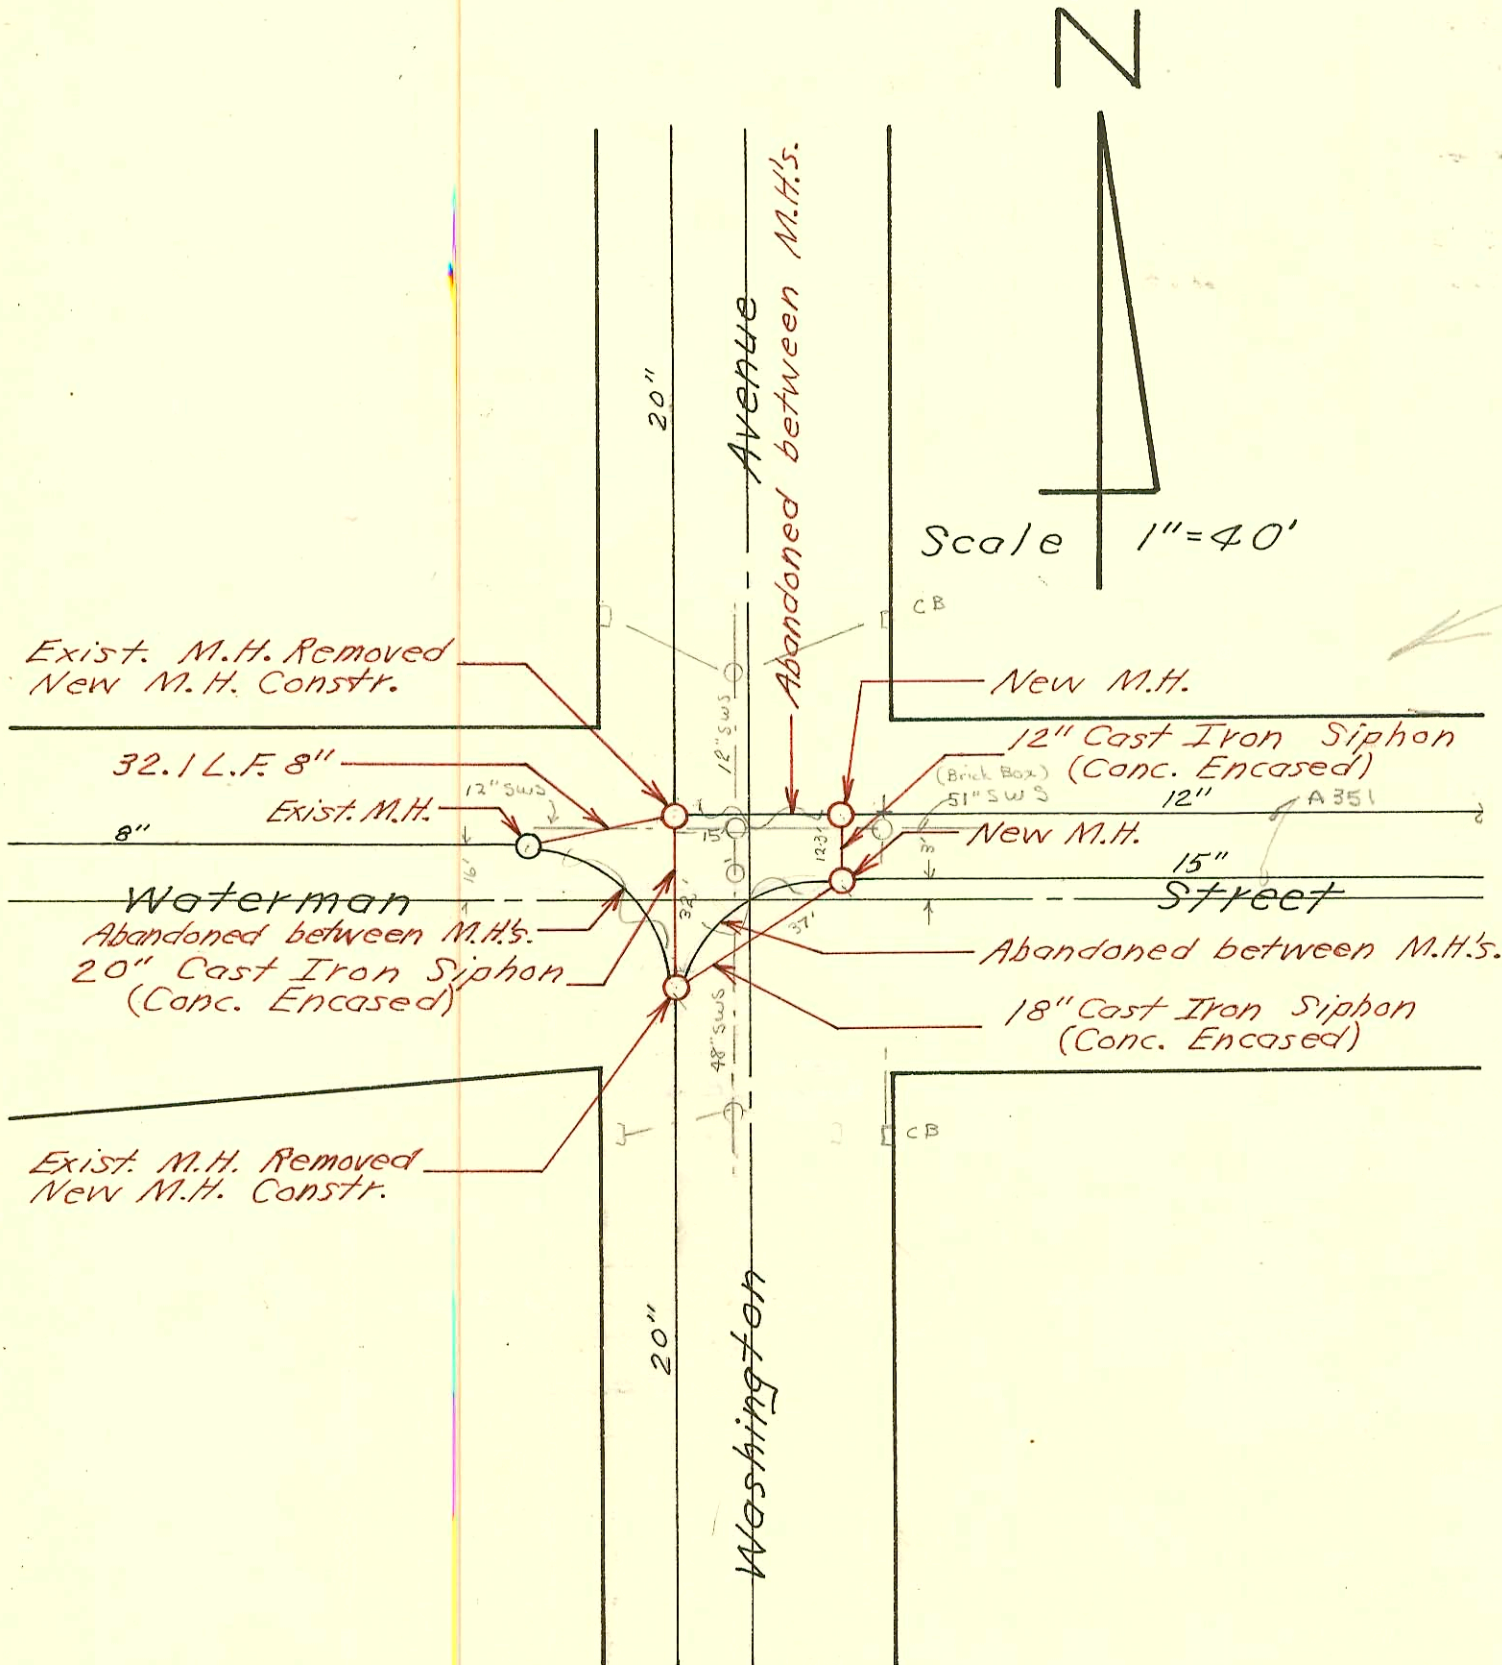 N
Scale 1"=40'
20"
Avenue
Abandoned between M.H's.
CB
Exist. M.H. Removed
New M.H. Constr.
New M.H.
12" SWS
32.1 L.F. 8"
12" Cast Iron Siphon
(Conc. Encased)
(Brick Box)
51" SWS
12"
A351
12" SWS
Exist. M.H.
8"
15'
123'
3'
New M.H.
15"
16'
Waterman
Street
32'
37'
Abandoned between M.H's.
20" Cast Iron Siphon
(Conc. Encased)
Abandoned between M.H's.
18" Cast Iron Siphon
(Conc. Encased)
48" SWS
CB
Exist. M.H. Removed
New M.H. Constr.
20"
Washington